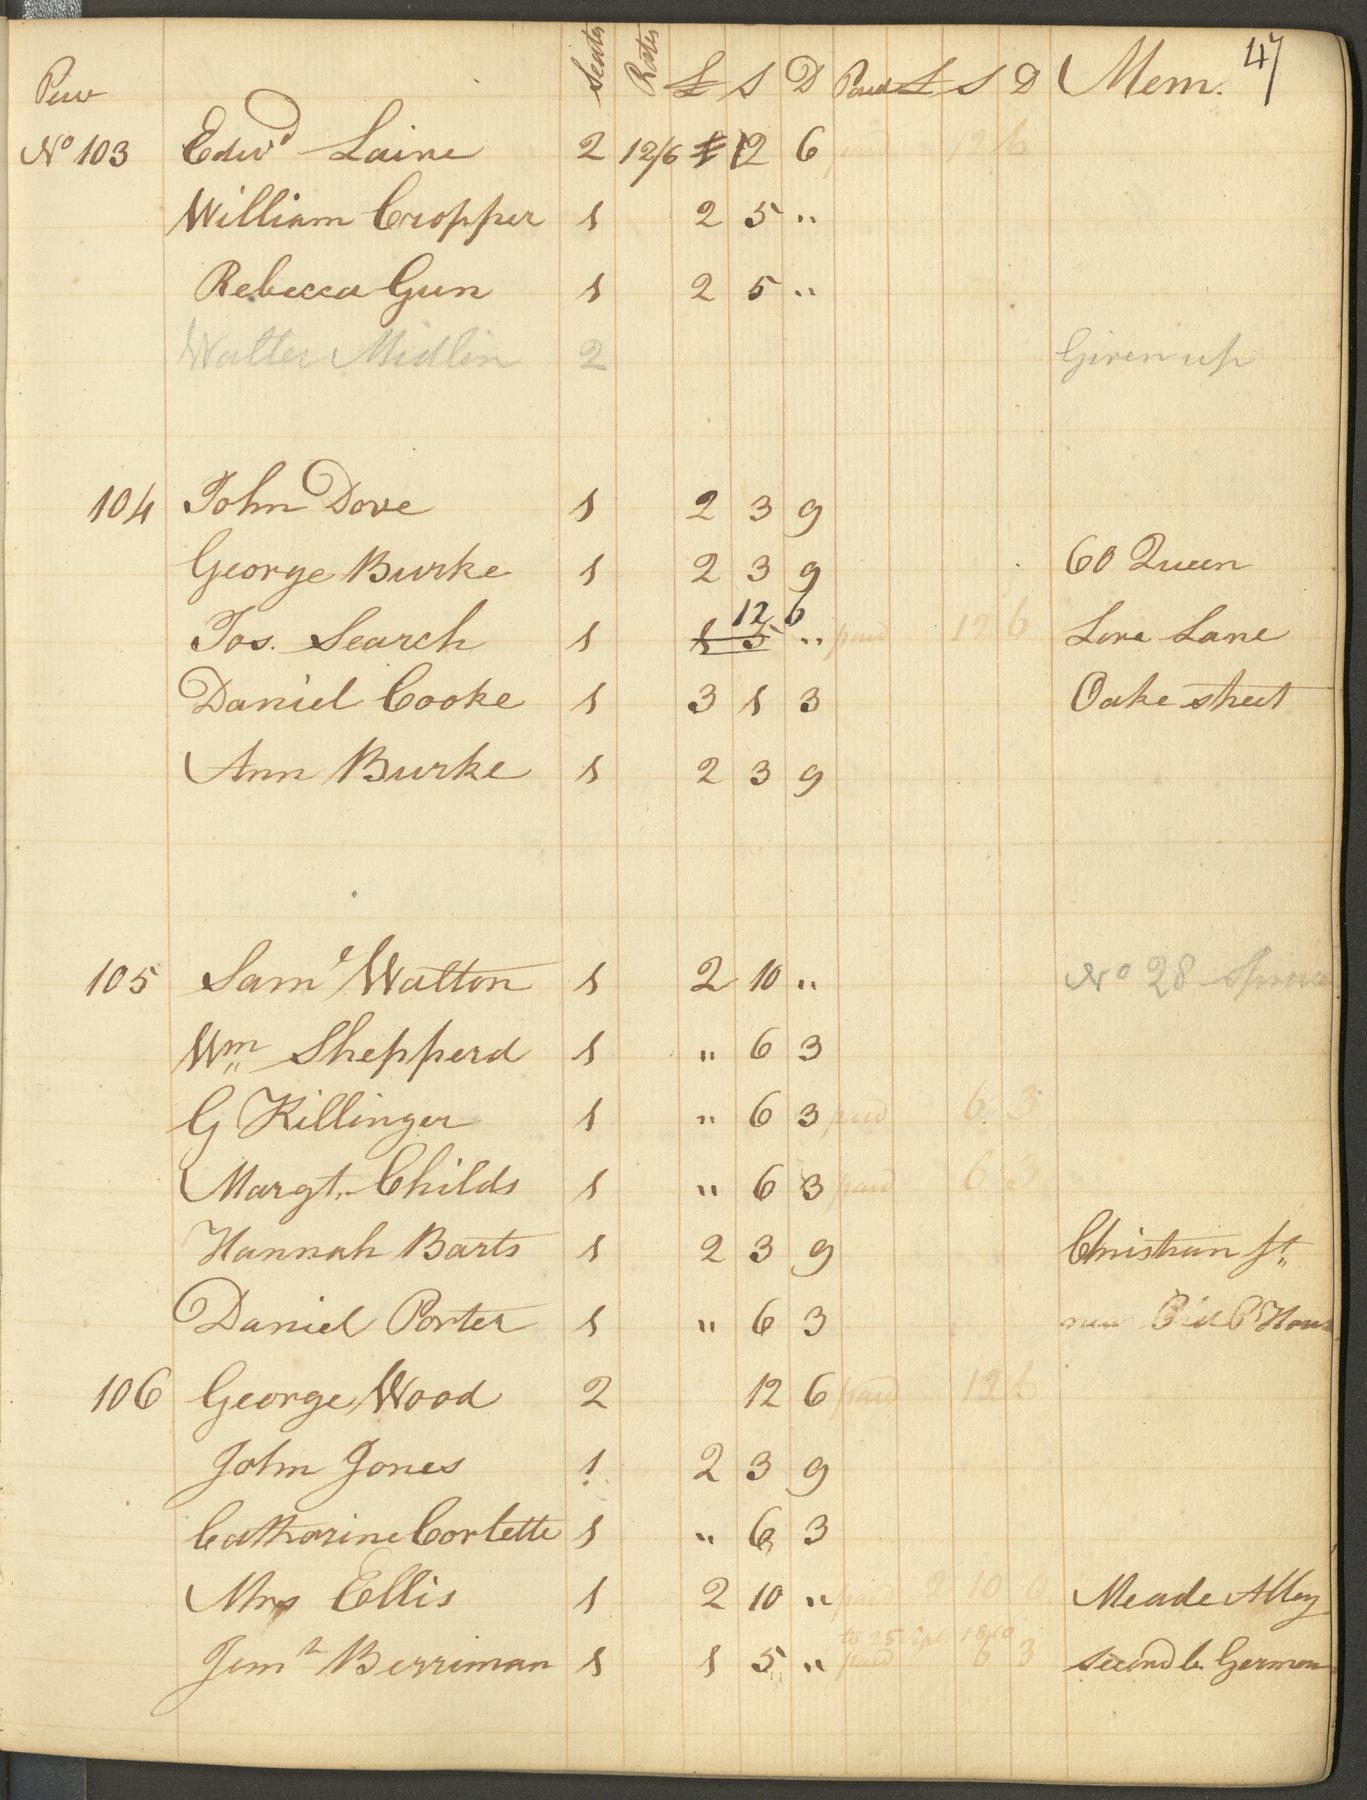 47
Pew Seats Rates £ S D Paid £ S D Mem.
No 103 Edwd Laine 2 12/6 £ 12 6 paid 12 6
William Cropper 1 2 5 "
Rebecca Gun 1 2 5 "
Walter Midlin 2 Given up
104 John Dove 1 2 3 9
George Burke 1 2 3 9 60 Queen
12 6
Jos. Search 1 1 5 " paid 12 6 Love Lane
Daniel Cooke 1 3 1 3 Oake street
Ann Burke 1 2 3 9
105 Saml Walton 1 2 10 " No 28
Wm Shepperd 1 " 6 3
G Killinger 1 " 6 3 paid 6 3
Margt. Childs 1 " 6 3 paid 6 3
Hannah Barts 1 2 3 9 Christian St
Daniel Porter 1 " 6 3 near
106 George Wood 2 12 6 paid 12 6
John Jones 1 2 3 9
Catharine Corlette 1 " 6 3
Mrs Ellis 1 2 10 " paid 2 10 0 Meade Alley
to 25 Sept 1810
Jemh Berriman 1 1 5 " paid 6 3 second b. German